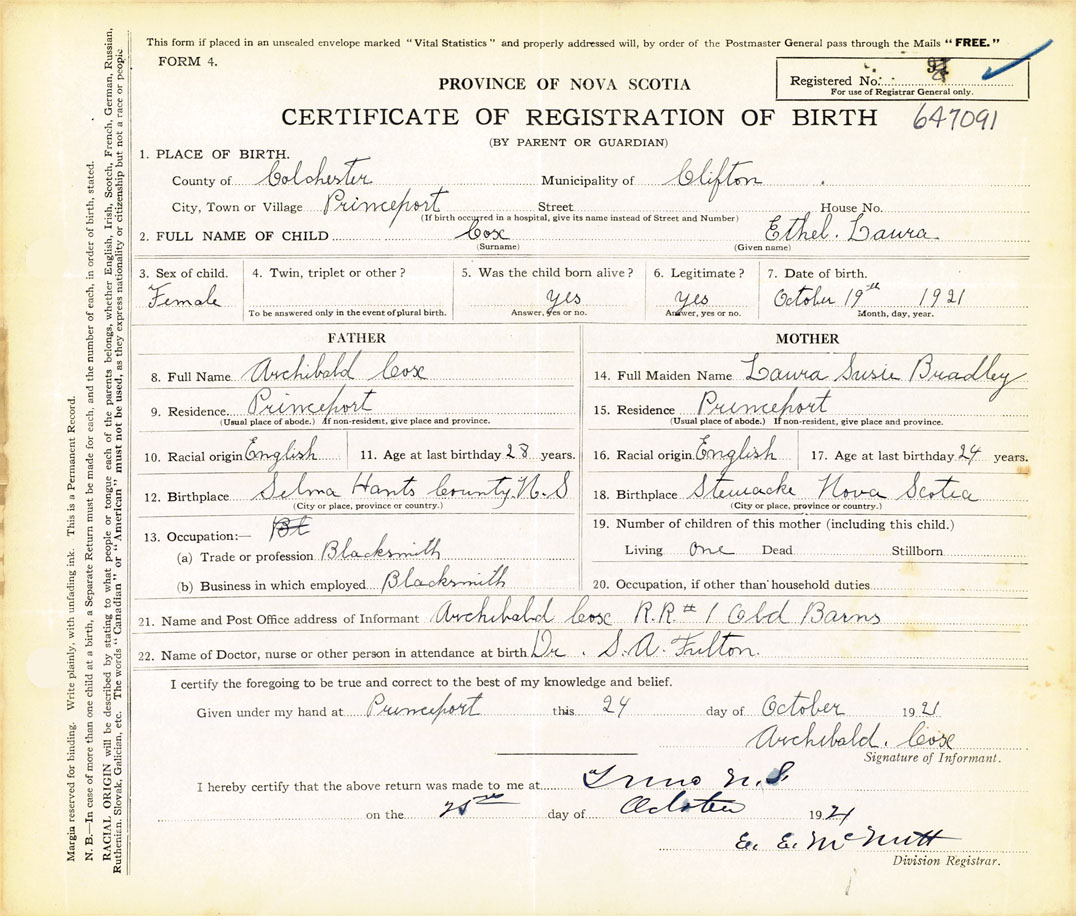 This form if placed in an unsealed envelope marked "Vital Statistics" and properly addressed will, by order of the Postmaster General pass through the Mails "FREE."
FORM 4.
Registered No.
For use of Registrar General only.
PROVINCE OF NOVA SCOTIA
CERTIFICATE OF REGISTRATION OF BIRTH 647091
(BY PARENT OR GUARDIAN)
1. PLACE OF BIRTH.
County of Colchester Municipality of Clifton
City, Town or Village Princeport Street House No.
(If birth occurred in a hospital, give its name instead of Street and Number)
2. FULL NAME OF CHILD Cox Ethel. Laura
(Surname) (Given name)
3. Sex of child. 4. Twin, triplet or other? 5. Was the child born alive? 6. Legitimate? 7. Date of birth.
Female yes yes October 19th 1921
To be answered only in the event of plural birth. Answer, yes or no. Answer, yes or no. Month, day, year.
FATHER MOTHER
8. Full Name Archibald Cox 14. Full Maiden Name Laura Susie Bradley
9. Residence. Princeport 15. Residence Princeport
(Usual place of abode.) If non-resident, give place and province. (Usual place of abode.) If non-resident, give place and province.
10. Racial origin English 11. Age at last birthday 28 years. 16. Racial origin English 17. Age at last birthday 24 years.
12. Birthplace Selma Hants County. N.S 18. Birthplace Stewacke Nova Scotia
(City or place, province or country.) (City or place, province or country.)
13. Occupation:— Bl 19. Number of children of this mother (including this child.)
(a) Trade or profession Blacksmith Living one Dead Stillborn
(b) Business in which employed Blacksmith 20. Occupation, if other than household duties
21. Name and Post Office address of Informant Archibald Cox R.R # 1 Old Barns
22. Name of Doctor, nurse or other person in attendance at birth Dr. S. A. Fulton.
I certify the foregoing to be true and correct to the best of my knowledge and belief.
Given under my hand at Princeport this 24 day of October 1921
Archibald. Cox
Signature of Informant.
I hereby certify that the above return was made to me at Truro N.S.
on the 25th day of October 1921
E. E. McNutt
Division Registrar.
Margin reserved for binding. Write plainly, with unfading ink. This is a Permanent Record.
N. B.—In case of more than one child at a birth, a Separate Return must be made for each, and the number of each, in order of birth, stated.
RACIAL ORIGIN will be described by stating to what people or tongue each of the parents belongs, whether English, Irish, Scotch, French, German, Russian,
Ruthenian, Slovak, Galician, etc. The words "Canadian" or "American" must not be used, as they express nationality or citizenship but not a race or people